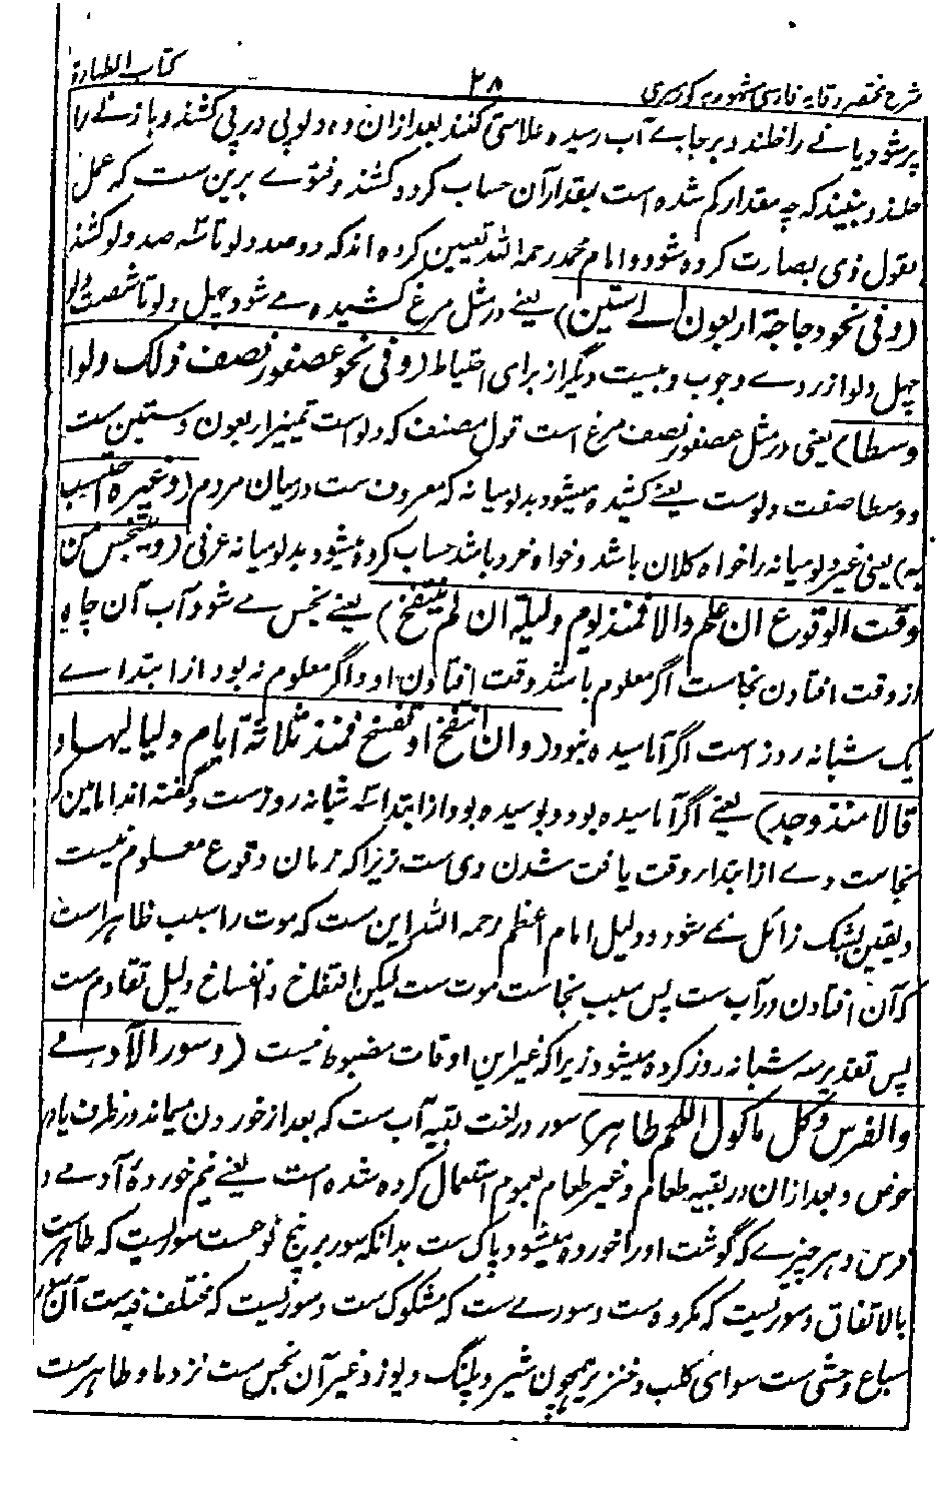 شرح مختصر وقایه فارسی مشهور به کوهسری
۲۸
کتاب الطهارة
پر شود یا نے را خلند و بر جائے آب رسیده علامتی کنند بعد ازان ده دلو پی در پی کشند و باز نے را
خلند و ببینند که چه مقدار کم شده است بمقدار آن حساب کرده کشند و فتوے برین ست که عمل
بقول ذی بصارت کرده شود و امام محمد رحمه الله تعیین کرده اند که دو صد دلو تا سه صد دلو کشند
(وفی نحو دجاجة اربعون الے ستین) یعنے در مثل مرغ کشیده مے شود چهل دلو تا شصت دلو
چهل دلو از روے وجوب و بیست دیگر از برای احتیاط (وفی نحو عصفور نصف ذلک دلوا
وسطا) یعنی در مثل عصفور نصف مرغ است قول مصنف که دلو است تمیز اربعون و ستین ست
و وسطا صفت دلوست یعنے کشیده میشود بدلو میانه که معروف ست در میان مردم (وغیره احتسب
به) یعنی غیر دلو میانه را خواه کلان باشد و خواه خرد باشد حساب کرده میشود بدلو میانه عرفی (ویتنجس من
وقت الوقوع ان علم والا فمنذ یوم ولیلة ان لم ینتفخ) یعنے نجس مے شود آب آن چاه
از وقت افتادن نجاست اگر معلوم باشد وقت افتادن او و اگر معلوم نبود از ابتداے
یک شبانه روز است اگر آماسیده نبود (وان انتفخ او تفسخ فمنذ ثلاثة ایام ولیالیها و
قالا منذ وجد) یعنے اگر آماسیده بود و پوسیده بود از ابتداء سه شبانه روزست و گفته اند امامین که
نجاست وے از ابتداء وقت یافت شدن وی ست زیرا که زمان وقوع معلوم نیست
و یقین بشک زائل نمے شود و دلیل امام اعظم رحمه الله این ست که موت را سبب ظاهر است
که آن افتادن در آب ست پس سبب نجاست موت ست لیکن انتفاخ و انفساخ دلیل تقادم ست
پس تقدیر سه شبانه روز کرده میشود زیرا که غیر این اوقات مضبوط نیست (وسور الآدمے
والفرس وکل ماکول اللحم طاهر) سور در لغت بقیه آب ست که بعد از خوردن میماند در ظرف یا در
حوض و بعد ازان در بقیه طعام و غیر طعام بعموم استعمال کرده شده است یعنے نیم خوردهٔ آدمے و
فرس و هر چیزے که گوشت او را خورده میشود پاک ست بدانکه سور بر پنج نوعست سوریست که طاهرست
بالاتفاق و سوریست که مکروه ست و سورے ست که مشکوک ست و سوریست که مختلف فیه ست آن سور
سباع وحشی ست سوای کلب و خنزیر همچون شیر و پلنگ و یوز و غیر آن نجس ست نزد ما و طاهرست